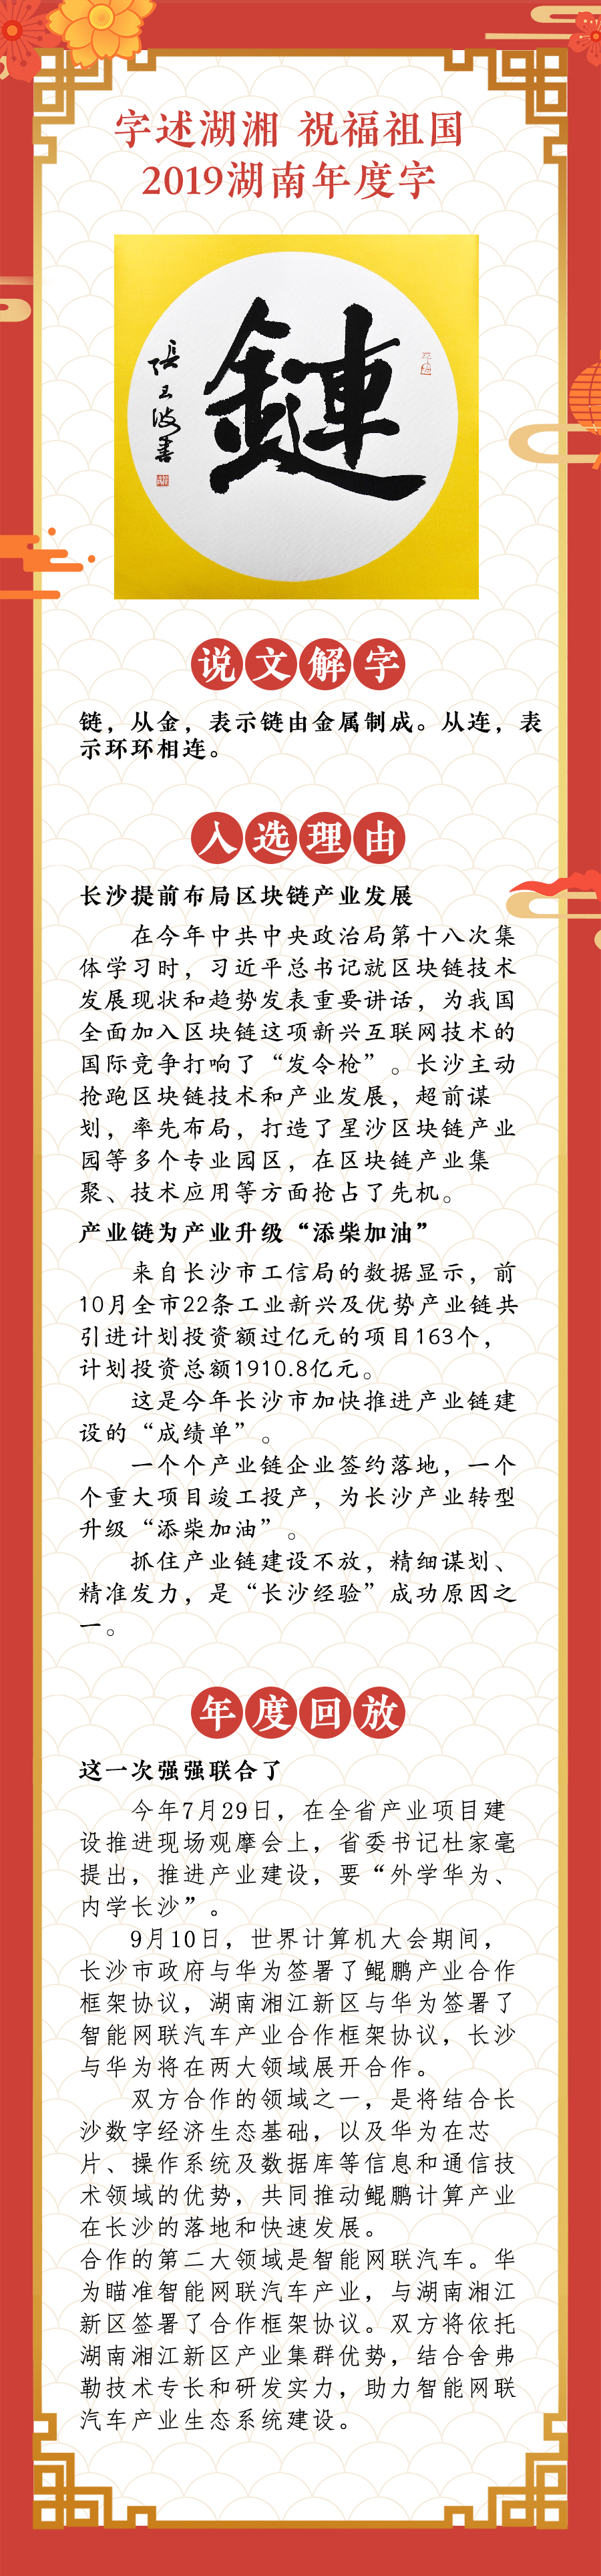 字述湖湘 祝福祖国
2019湖南年度字
鏈
張玉波書
说文解字
链，从金，表示链由金属制成。从连，表
示环环相连。
入选理由
长沙提前布局区块链产业发展
在今年中共中央政治局第十八次集
体学习时，习近平总书记就区块链技术
发展现状和趋势发表重要讲话，为我国
全面加入区块链这项新兴互联网技术的
国际竞争打响了“发令枪”。长沙主动
抢跑区块链技术和产业发展，超前谋
划，率先布局，打造了星沙区块链产业
园等多个专业园区，在区块链产业集
聚、技术应用等方面抢占了先机。
产业链为产业升级“添柴加油”
来自长沙市工信局的数据显示，前
10月全市22条工业新兴及优势产业链共
引进计划投资额过亿元的项目163个，
计划投资总额1910.8亿元。
这是今年长沙市加快推进产业链建
设的“成绩单”。
一个个产业链企业签约落地，一个
个重大项目竣工投产，为长沙产业转型
升级“添柴加油”。
抓住产业链建设不放，精细谋划、
精准发力，是“长沙经验”成功原因之
一。
年度回放
这一次强强联合了
今年7月29日，在全省产业项目建
设推进现场观摩会上，省委书记杜家毫
提出，推进产业建设，要“外学华为、
内学长沙”。
9月10日，世界计算机大会期间，
长沙市政府与华为签署了鲲鹏产业合作
框架协议，湖南湘江新区与华为签署了
智能网联汽车产业合作框架协议，长沙
与华为将在两大领域展开合作。
双方合作的领域之一，是将结合长
沙数字经济生态基础，以及华为在芯
片、操作系统及数据库等信息和通信技
术领域的优势，共同推动鲲鹏计算产业
在长沙的落地和快速发展。
合作的第二大领域是智能网联汽车。华
为瞄准智能网联汽车产业，与湖南湘江
新区签署了合作框架协议。双方将依托
湖南湘江新区产业集群优势，结合舍弗
勒技术专长和研发实力，助力智能网联
汽车产业生态系统建设。